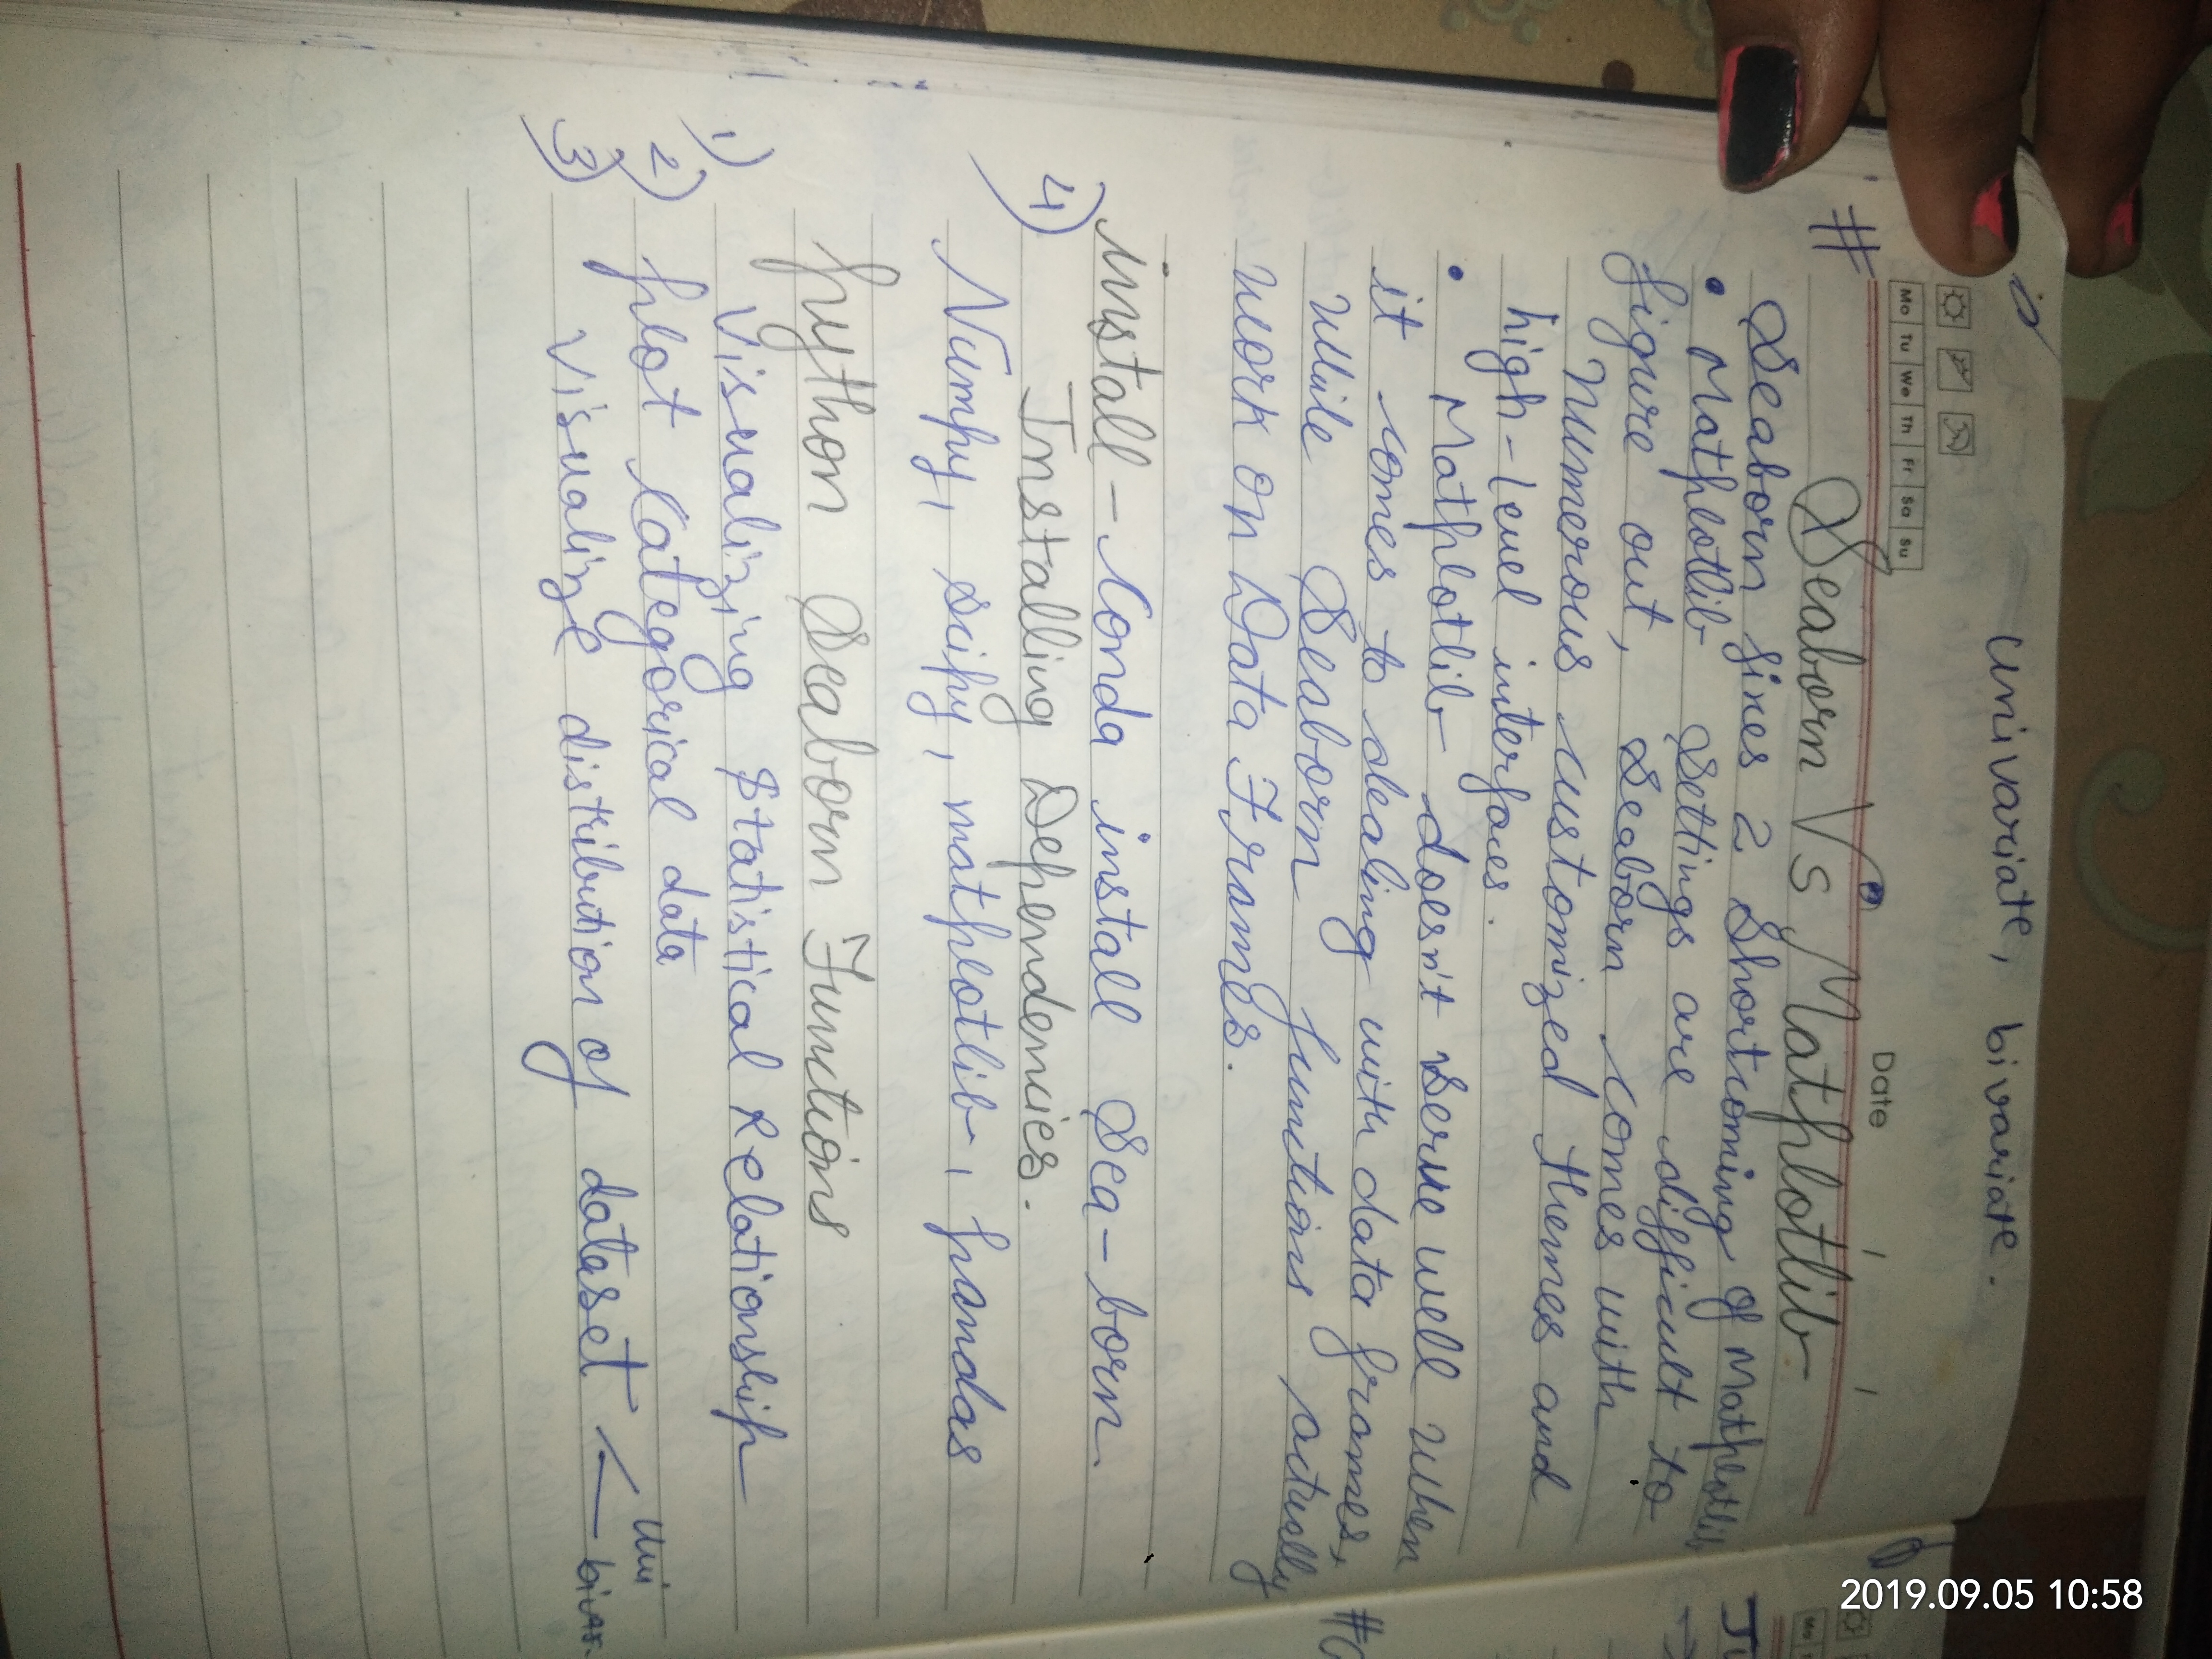 univariate, bivariate.
Mo Tu We Th Fr Sa Su
Date / /
# Seaborn Vs Mathplotlib
Seaborn fixes 2 Shortcoming of Mathplotlib
• Mathplotlib Settings are difficult to
figure out, Seaborn comes with
numerous customized themes and
high-level interfaces.
• Mathplotlib doesn't serve well when
it comes to dealing with data frames,
while Seaborn functions actually
work on Data Frames.
install - Conda install Sea-born.
4) Installing Dependencies.
Numpy, Scipy, mathplotlib, pandas
python Seaborn Functions
1) Visualizing Statistical Relationship
2) plot Categorical data
3) Visualize distribution of dataset < uni
bivar.
2019.09.05 10:58